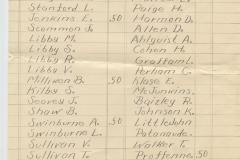 Stanford L. Paige H.
Jenkins E. .50 Harmon D.
Scammon J. Allen D.
Libby M. Ahlquist A.
Libby S. Cohen H.
Libby R. Graffam L.
Libby V. Perham C.
Milliken B. .50 Klose E.
Kilby S. McJunkins
Seavey J. Bagley R.
Shaw B. Johnson K.
Swinburne A. .50 Littlejohn
Swinburne L. Patanaude
Sullivan V. Walker T.
Sullivan T. .50